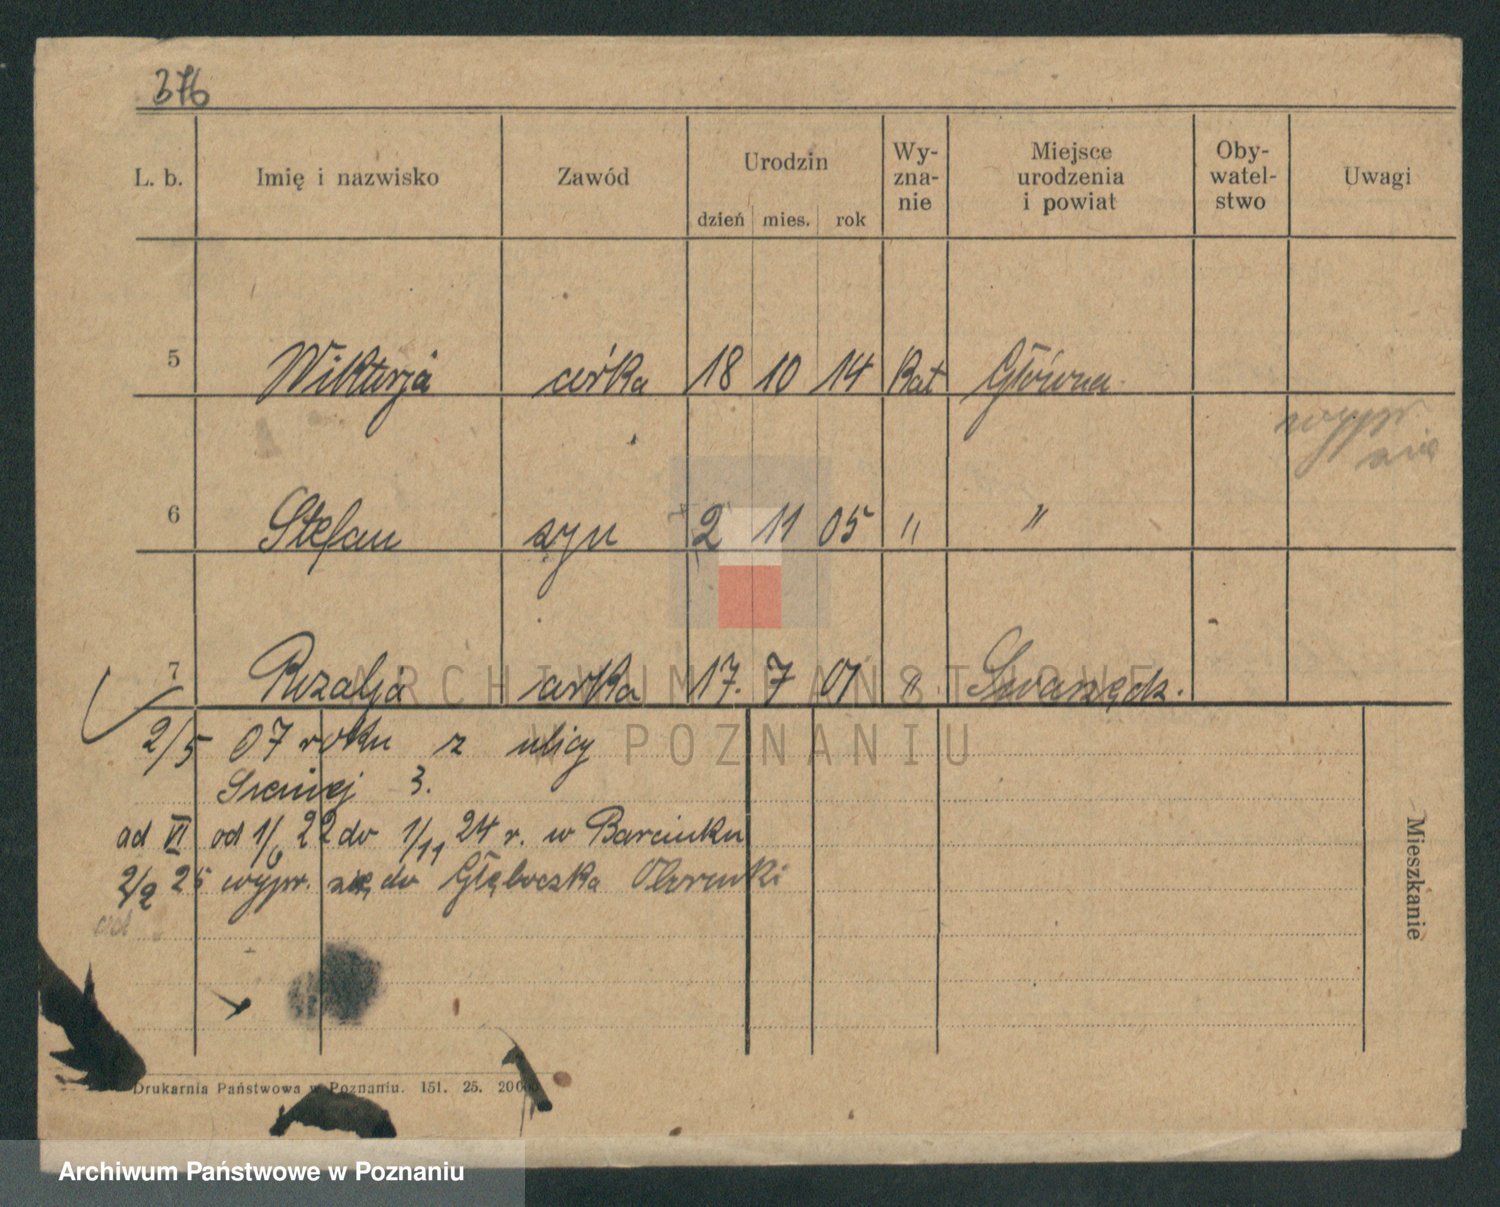 376
L. b. Imię i nazwisko Zawód Urodzin dzień mies. rok Wy-zna-nie Miejsce urodzenia i powiat Oby-watel-stwo Uwagi
5 Wiktorja córka 18 10 14 Kat Główna
wypr
się
6 Stefan syn 2 11 05 " "
7 Rozalja córka 17. 7 01 " Swarzędz.
ARCHIWUM PAŃSTWOWE
W POZNANIU
2/5 07 roku z ulicy
3.
ad VI od 1/6 22 do 1/11 24 r. w Barcinku
2/2 25 wypr. się do Głęboczka Oborniki
ad
Mieszkanie
Drukarnia Państwowa w Poznaniu. 151. 25. 20000
Archiwum Państwowe w Poznaniu